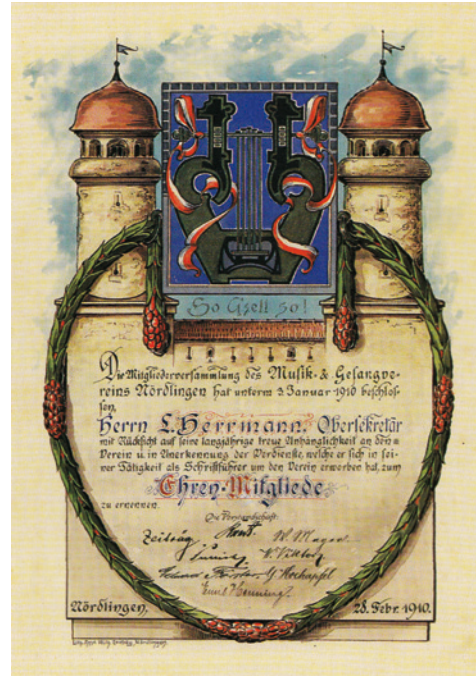 So Gsell so!
Die Mitgliederversammlung des Musik- & Gesangve-
reins Nördlingen hat unterm 3. Januar 1910 beschlos-
sen,
Herrn L. Herrmann, Obersekretär
mit Rücksicht auf seine langjährige treue Anhänglichkeit an den
Verein u. in Anerkennung der Verdienste, welche er sich in sei-
ner Tätigkeit als Schriftführer um den Verein erworben hat, zum
Ehren-Mitgliede
zu ernennen.
Die Vorstandschaft:
Nördlingen, 28. Febr. 1910.